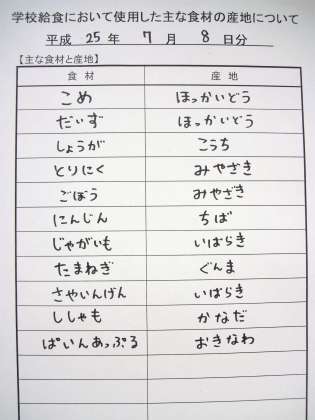 学校給食において使用した主な食材の産地について
平成 25 年 7 月 8 日分
【主な食材と産地】
食材 産地
こめ ほっかいどう
だいず ほっかいどう
しょうが こうち
とりにく みやざき
ごぼう みやざき
にんじん ちば
じゃがいも いばらき
たまねぎ ぐんま
さやいんげん いばらき
ししゃも かなだ
ぱいんあっぷる おきなわ